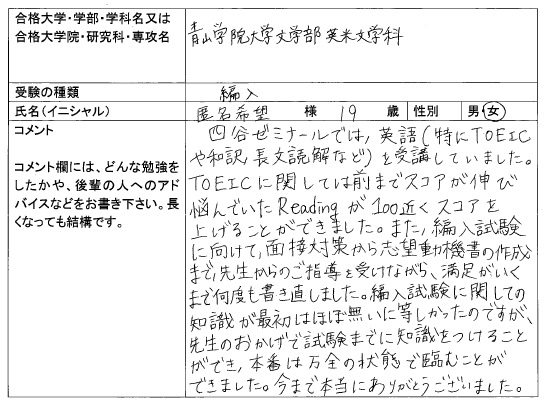 合格大学・学部・学科名又は
合格大学院・研究科・専攻名
青山学院大学文学部英米文学科
受験の種類
編入
氏名(イニシャル)
匿名希望 様 19 歳 性別 男・女
コメント
コメント欄には、どんな勉強を
したかや、後輩の人へのアド
バイスなどをお書き下さい。長
くなっても結構です。
四谷ゼミナールでは,英語(特にTOEIC
や和訳,長文読解など)を受講していました。
TOEICに関しては前までスコアが伸び
悩んでいたReadingが100近くスコアを
上げることができました。また,編入試験
に向けて,面接対策から志望動機書の作成
まで,先生からのご指導を受けながら、満足がいく
まで何度も書き直しました。編入試験に関しての
知識が最初はほぼ無いに等しかったのですが、
先生のおかげで試験までに知識をつけること
ができ,本番は万全の状態で臨むことが
できました。今まで本当にありがとうございました。